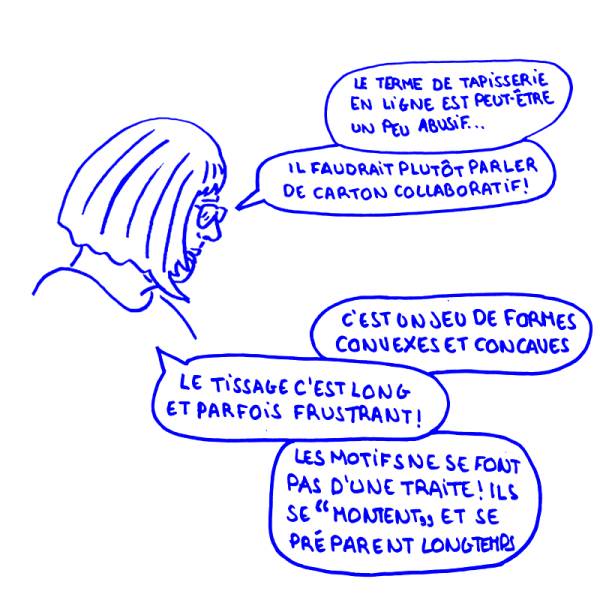 LE TERME DE TAPISSERIE
EN LIGNE EST PEUT-ÊTRE
UN PEU ABUSIF...
IL FAUDRAIT PLUTÔT PARLER
DE CARTON COLLABORATIF !
C'EST UN JEU DE FORMES
CONVEXES ET CONCAVES
LE TISSAGE C'EST LONG
ET PARFOIS FRUSTRANT !
LES MOTIFS NE SE FONT
PAS D'UNE TRAITE ! ILS
SE “MONTENT„ ET SE
PRÉPARENT LONGTEMPS